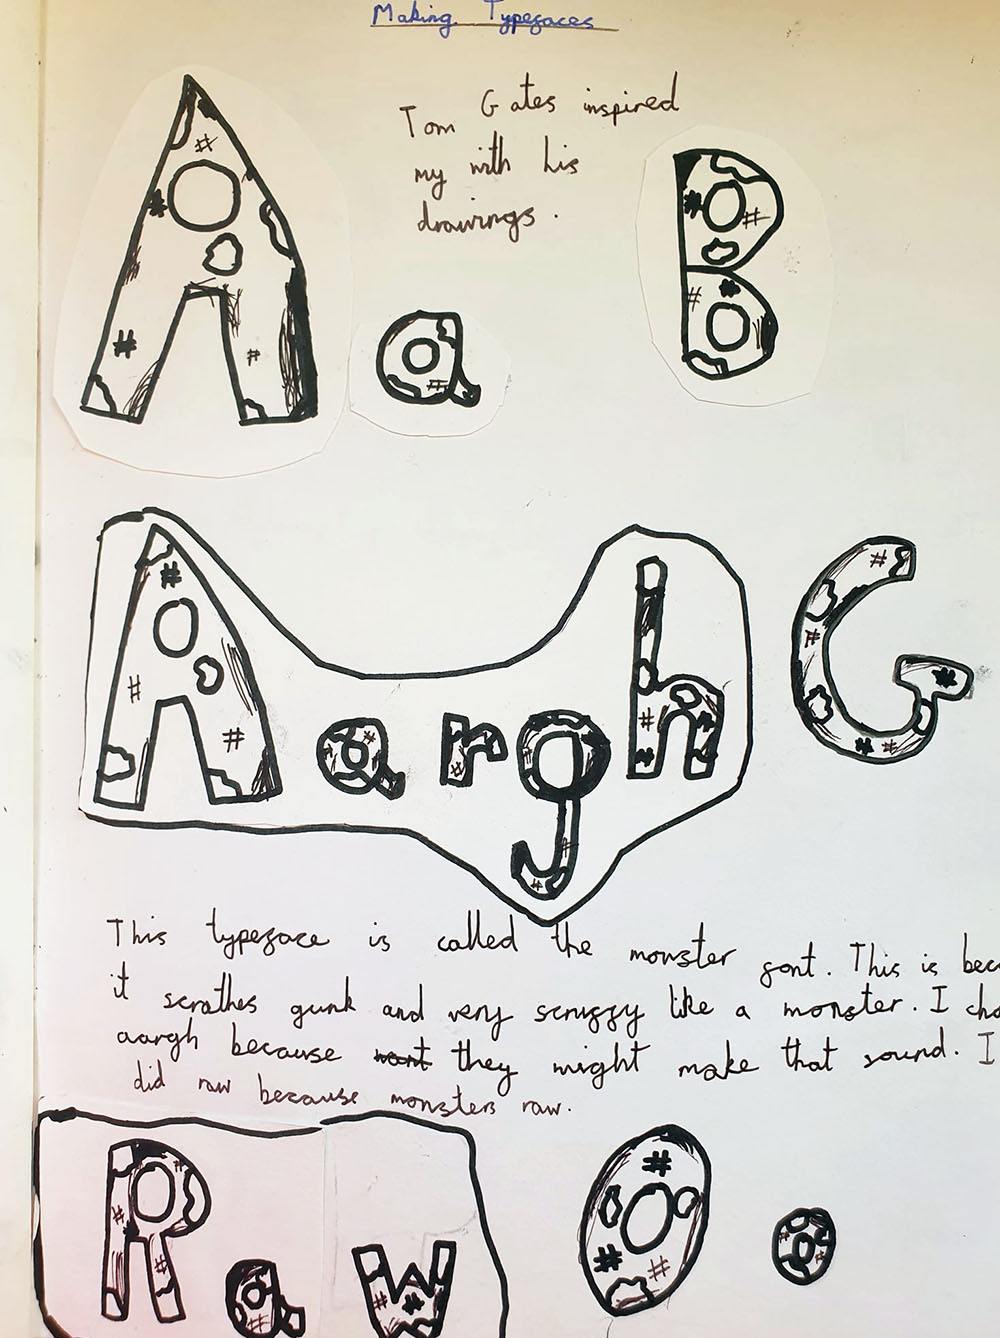 Making Typefaces
Tom Gates inspired
my with his
drawings.
A a B
Aargh G
This typeface is called the monster font. This is beca
it scrathes gunk and very scruffy like a monster. I cho
aargh because want they might make that sound. I
did raw because monsters raw.
Raw O o